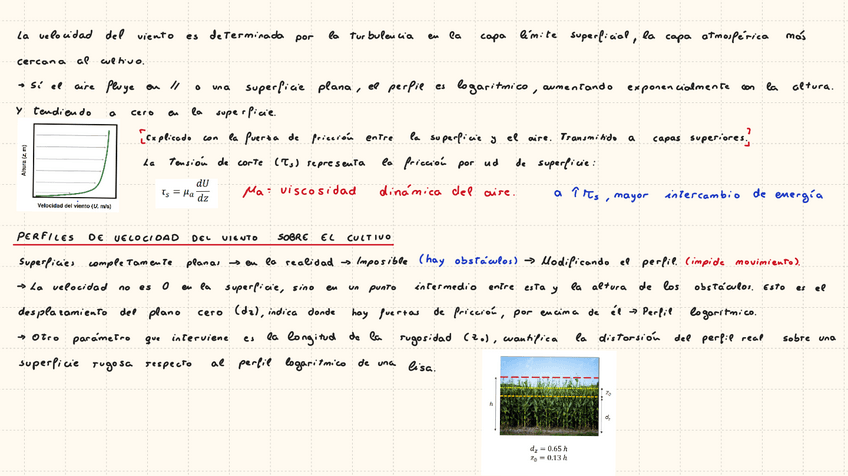 La velocidad del viento es determinada por la turbulencia en la capa límite superficial, la capa atmosférica más
cercana al cultivo.
→ Si el aire fluye en // a una superficie plana, el perfil es logarítmico, aumentando exponencialmente con la altura.
Y tendiendo a cero en la superficie.
[Explicado con la fuerza de fricción entre la superficie y el aire. Transmitido a capas superiores.]
La Tensión de corte (τs) representa la fricción por ud de superficie:
Altura (z, m)
Velocidad del viento (U, m/s)
τs = μa dU/dz
μa: viscosidad dinámica del aire.
a ↑τs, mayor intercambio de energía
PERFILES DE VELOCIDAD DEL VIENTO SOBRE EL CULTIVO
Superficies completamente planas → en la realidad → Imposible (hay obstáculos) → Modificando el perfil. (impide movimiento).
→ La velocidad no es 0 en la superficie, sino en un punto intermedio entre esta y la altura de los obstáculos. Esto es el
desplazamiento del plano cero (dz), indica donde hay fuerzas de fricción, por encima de él → Perfil logarítmico.
→ Otro parámetro que interviene es la longitud de la rugosidad (z₀), cuantifica la distorsión del perfil real sobre una
superficie rugosa respecto al perfil logarítmico de una lisa.
h
z₀
dz
dz = 0.65 h
z₀ = 0.13 h